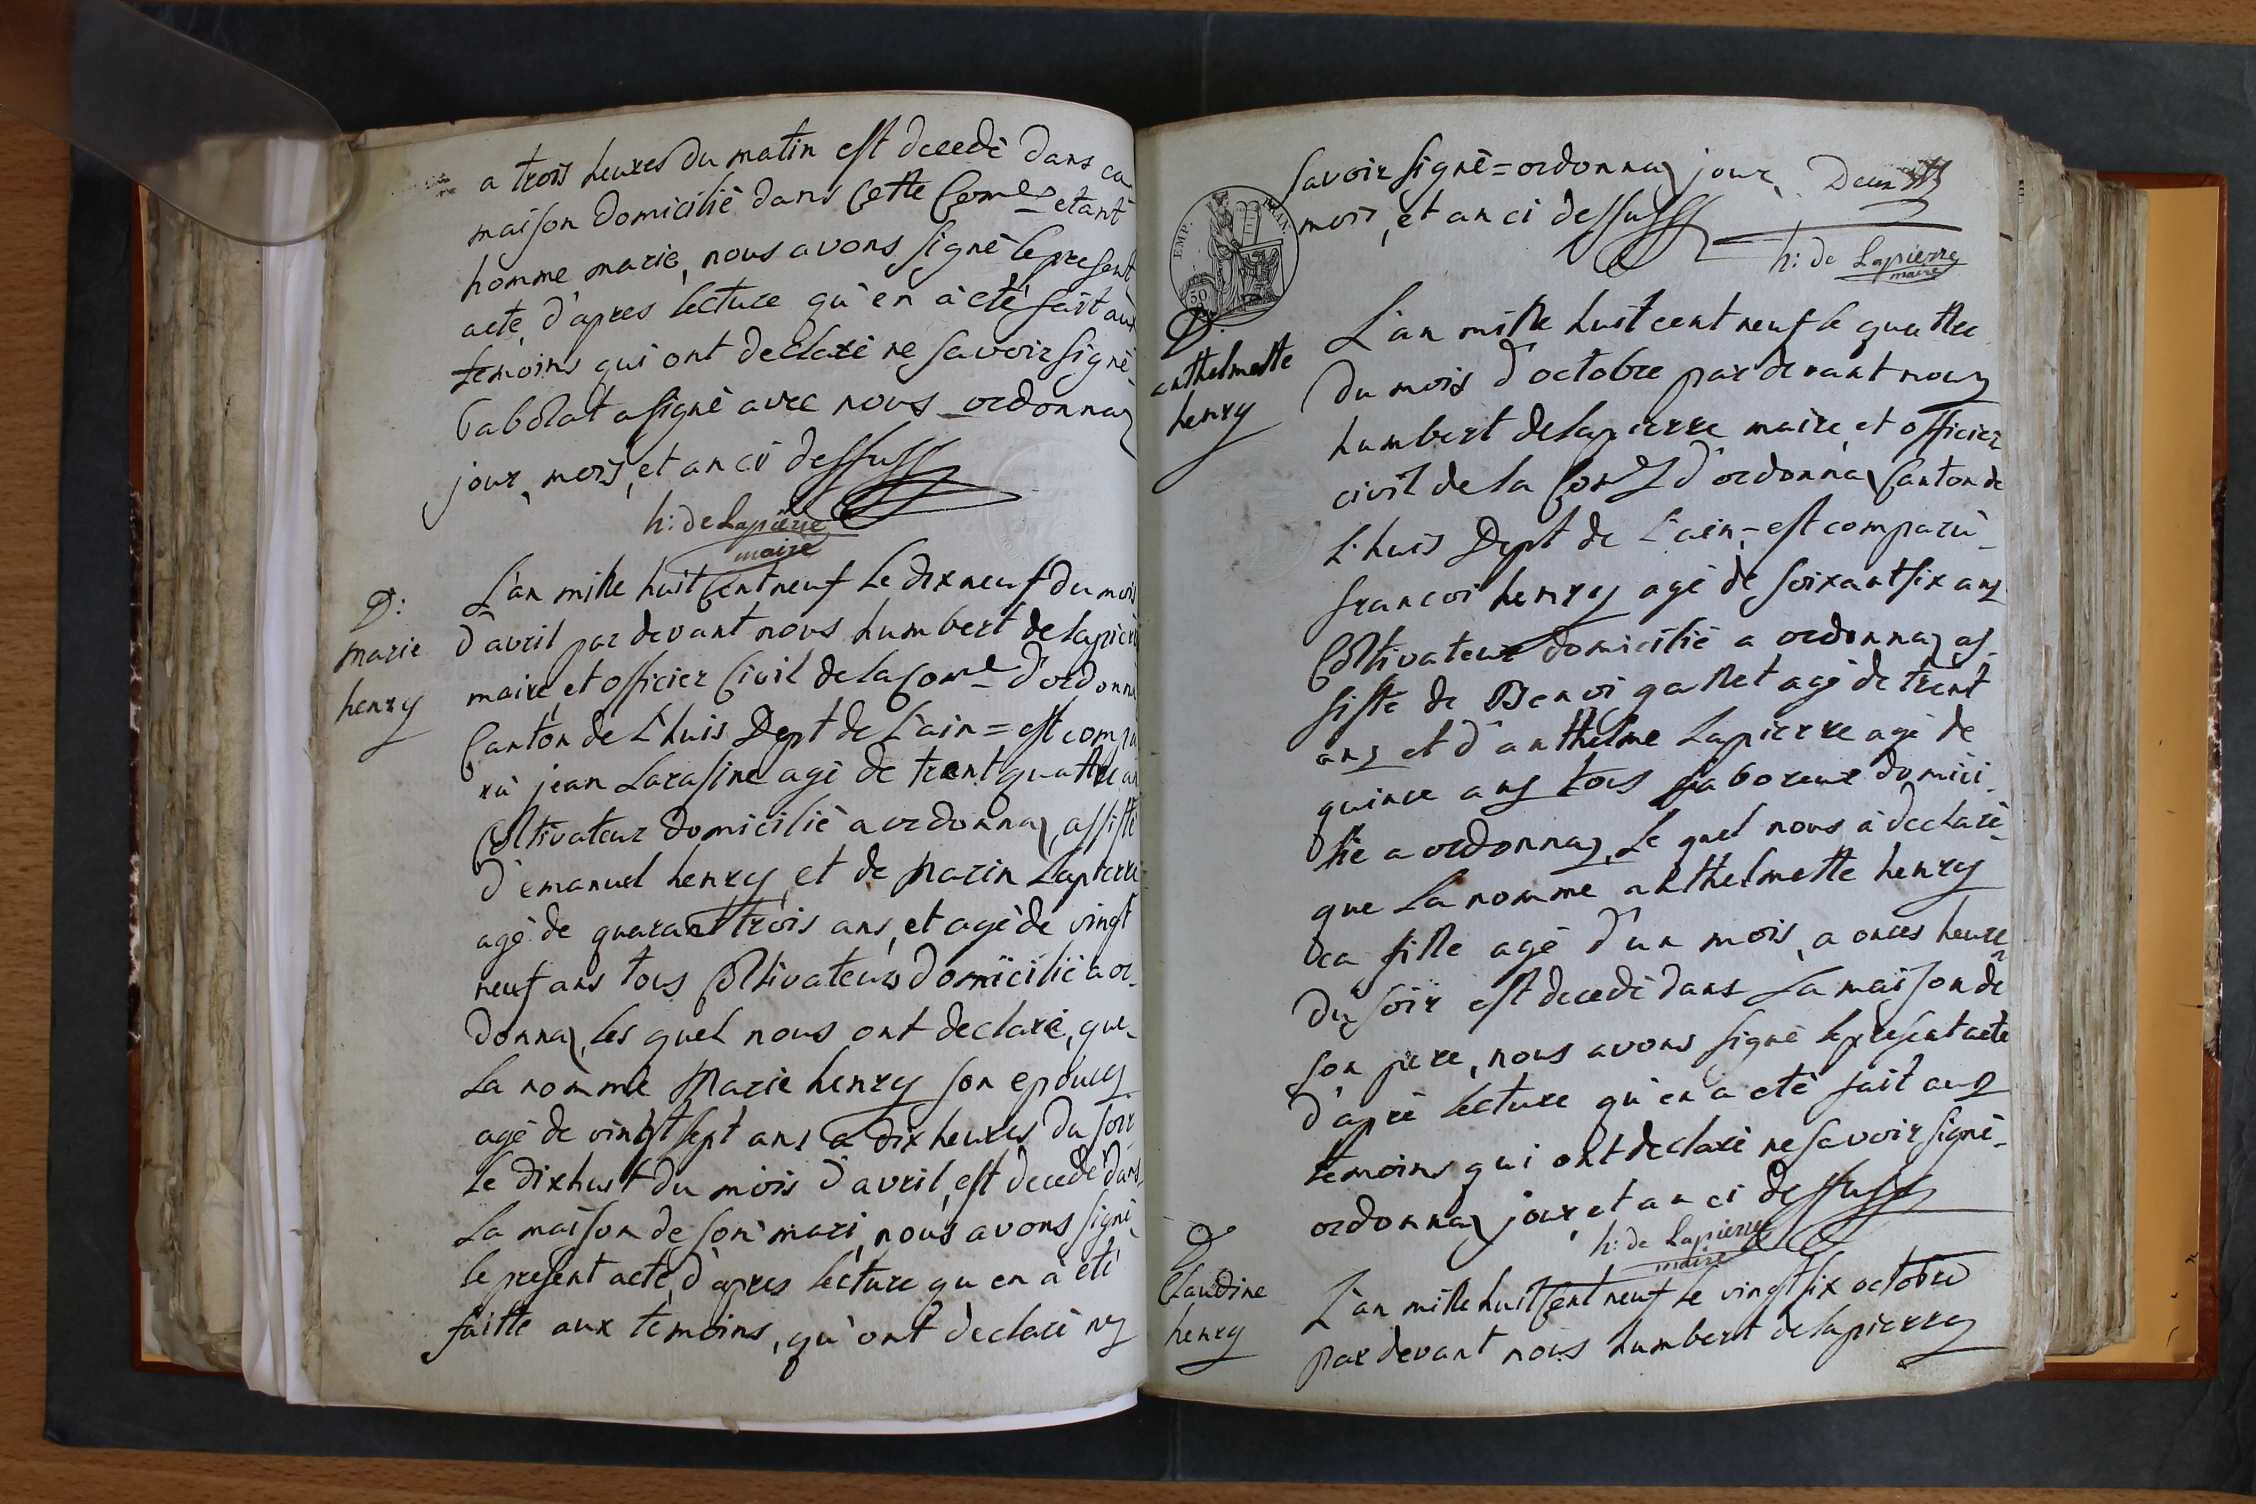 a trois heures du matin est decedé dans ca
maison domicilié dans Cette Com.e etant
homme marié, nous avons signé le present
acte, d'apres lecture qu'en à eté fait aux
temoins qui ont declaré ne savoir signé
Cabolat a signé avec nous ordonnaz
jour, mois, et an ci dessuss
h: de Lapierre
maire
D:
marie
henry
L'an mille huit Cent neuf Le dix neuf du mois
d'avril par devant nous humbert de lapierre
maire, et officier Civil de la Com.e d'ordonna
Canton de L'huis Dept de L'ain = est compa
rù jean Larasine agé de trent quattre an
Coltivateur domicilié a ordonnaz, assisté
d'emanuel henry et de Marin Lapierre
agé de quarant trois ans, et agé de vingt
neuf ans tous Coltivateurs domicilié a or-
donnaz, les quel nous ont declaré, que
La nommé Marie henry son epoucy
agé de vingt sept ans a dix heures du soir
le dix huit du mois d'avril, est decedé dans
La maison de son mari, nous avons signé
le present acte, d'apres lecture qu en à eté
faitte aux temoins, qu'ont declaré ny
EMP. FRAN.
50
savoir signé = ordonnaz jour,
mois, et an ci dessuss
h: de Lapierre
maire
D.
anthelmette
henry
L'an mille huit cent neuf le quattre
du mois d'octobre par devant nouz
humbert delapierre maire, et officier
civil de la Com.e d'ordonnaz Canton de
L'huis Dept de L'ain, = est comparù
francoi henry agé de soixant six ans
Coltivateur domicilié a ordonnaz as-
sisté de Benoi gallet agé de trent
ans et d'anthelme Lapierre agé de
quince ans tous Laboreur domici
lié a ordonnaz, Le quel nous à declaré
que La nomme anthelmette henry
ca fille agé d'un mois, a onces heure
du soir est decedé dans La maison de
son pere, nous avons signé le present acte
d'apré lecture qu'en a eté fait aux
temoins qui ont declaré ne savoir signé
ordonnaz jour, et an ci dessuss
h: de Lapierre
maire
D
Claudine
henry
L'an mille huit Cent neuf le vingt six octobre
par devant nous humbert delapierre